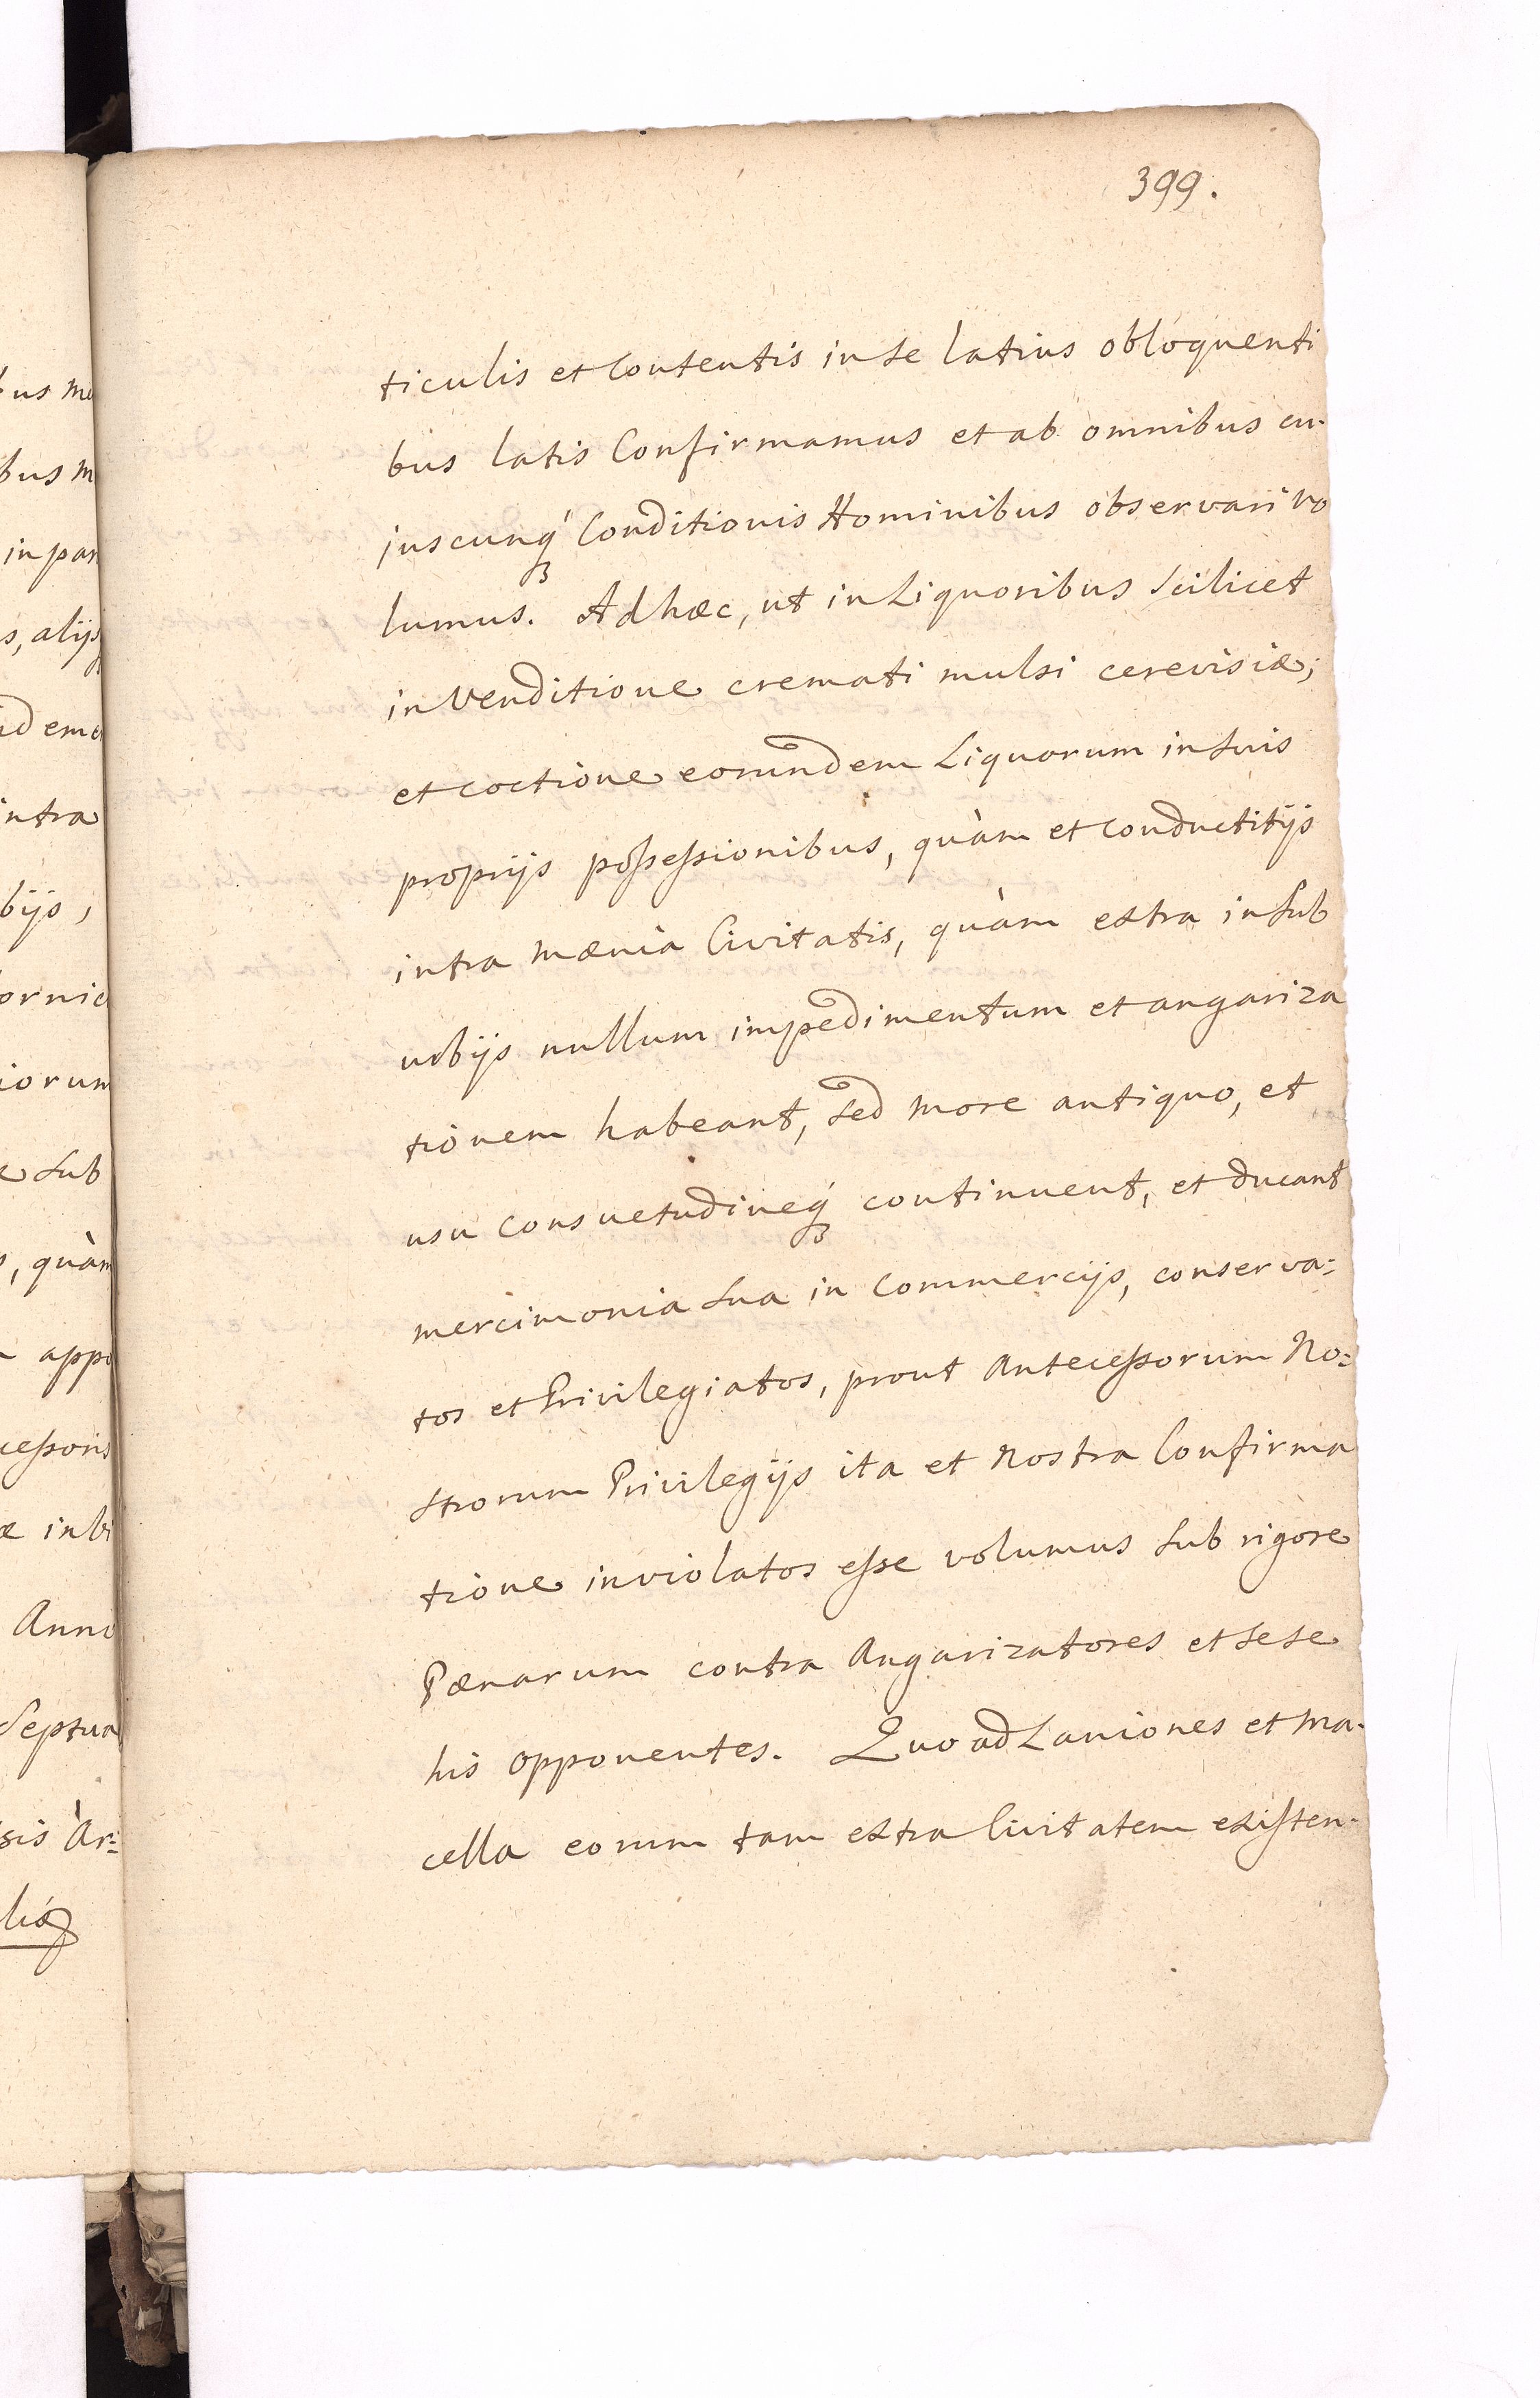 399.
ticulis et Contentis in se latius obloquenti
bus latis Confirmamus et ab omnibus cu-
juscunq́ꝫ Conditionis Hominibus observari vo
lumus. Ad hæc, ut in Liquoribus scilicet
in Venditione cremati mulsi cerevisiæ;
et coctione eorundem Liquorum in suis
proprijs possessionibus, quàm et conductitijs
intra mænia Civitatis, quàm extra in sub
urbijs nullum impedimentum et angariza
tionem habeant, sed more antiquo, et
usu consuetudineq́ꝫ continuent, et ducant
mercimonia sua in commercijs, conserva=
tos et Privilegiatos, prout Antecessorum No=
strorum Privilegijs ita et Nostra Confirma
tione inviolatos esse volumus sub rigore
Pænarum contra Angarizatores et sese
his opponentes. Quo ad Laniones et Ma-
cella eorum tam extra Civitatem existen-
bus m
in par
s, alijs
intra
bijs,
iorum
sub
, quàm
Anno
Septua
sis Ar=